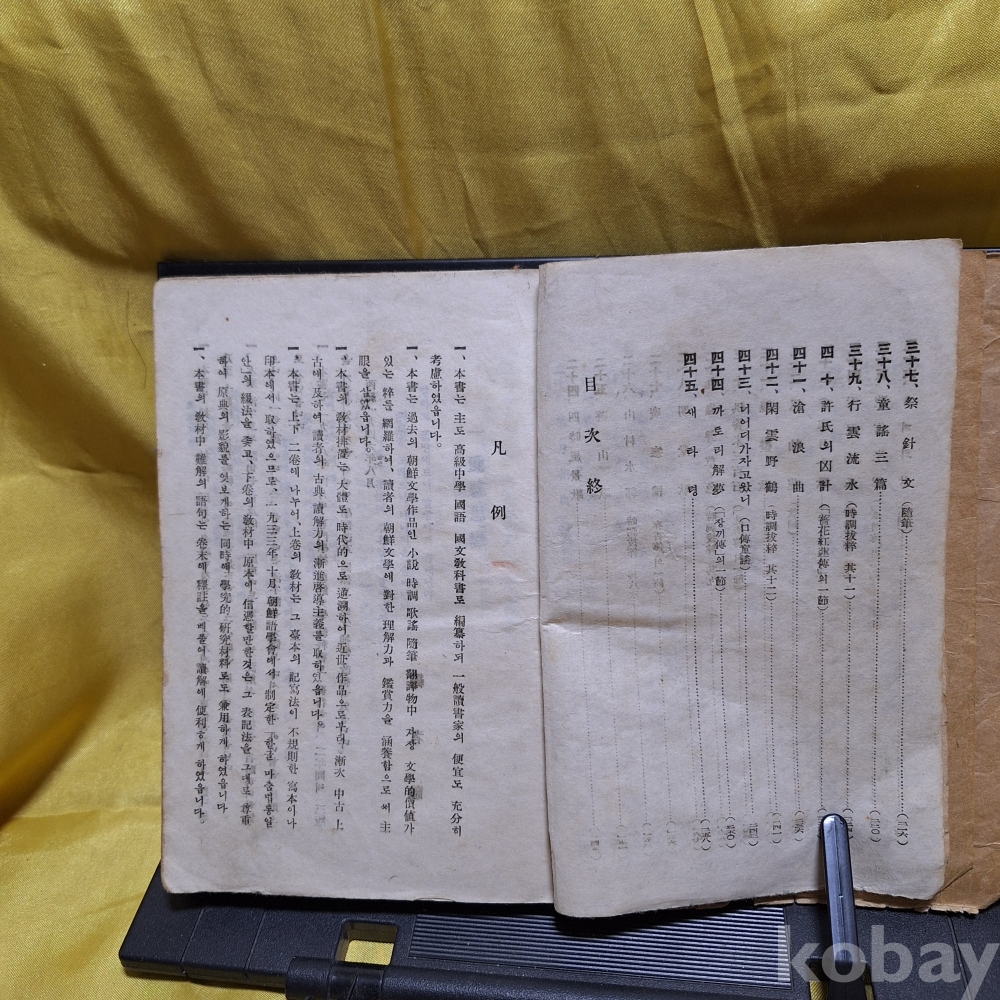 三十七、祭針文 (隨筆)
三十八、童謠三篇
三十九、行雲流水 (時調拔粹 其十一)
四十、許氏의凶計 (「薔花紅蓮傳의一節)
四十一、滄浪曲
四十二、閑雲野鶴 (時調拔粹 其十二)
四十三、너어디가자고왔니 (口傳童謠)
四十四、까토리解夢 (「장끼傳」의一節)
四十五、새타령
目次終
凡例
一、本書는 主로 高級中學 國語 國文敎科書로 編纂하되 一般讀書家의 便宜도 充分히
考慮하였읍니다。
一、本書는 過去의 朝鮮文學作品인 小說 時調 歌謠 隨筆 翻譯物中 가장 文學的價値가
있는 粹를 網羅하여、讀者의 朝鮮文學에 對한 理解力과 鑑賞力을 涵養함으로써 主
眼을 삼었읍니다。
一、本書의 敎材排置는 大體로 時代的으로 遡溯하여 近世 作品으로부터 漸次 中古 上
古에 及하여 讀者의 古典 讀解力의 漸進啓導主義를 取하였읍니다。
一、本書는 上下 二卷에 나누어、上卷의 敎材는 그 臺本의 記寫法이 不規則한 寫本이나
印本에서 取하였으므로、一九三三年 十月 朝鮮語學會에서 制定한「한글 마춤법통일
안」의 綴法을 좇고、下卷의 敎材中 原本에 信憑할만한것은 그 表記法을 그대로 尊重
하여 原典의 影貌를 엿보게하는 同時에 學究的 硏究材料로도 兼用하게 하였읍니다
一、本書의 敎材中 難解의 語句는 卷末에 釋註을 베풀어 讀解에 便利하게 하였읍니다。
kobay